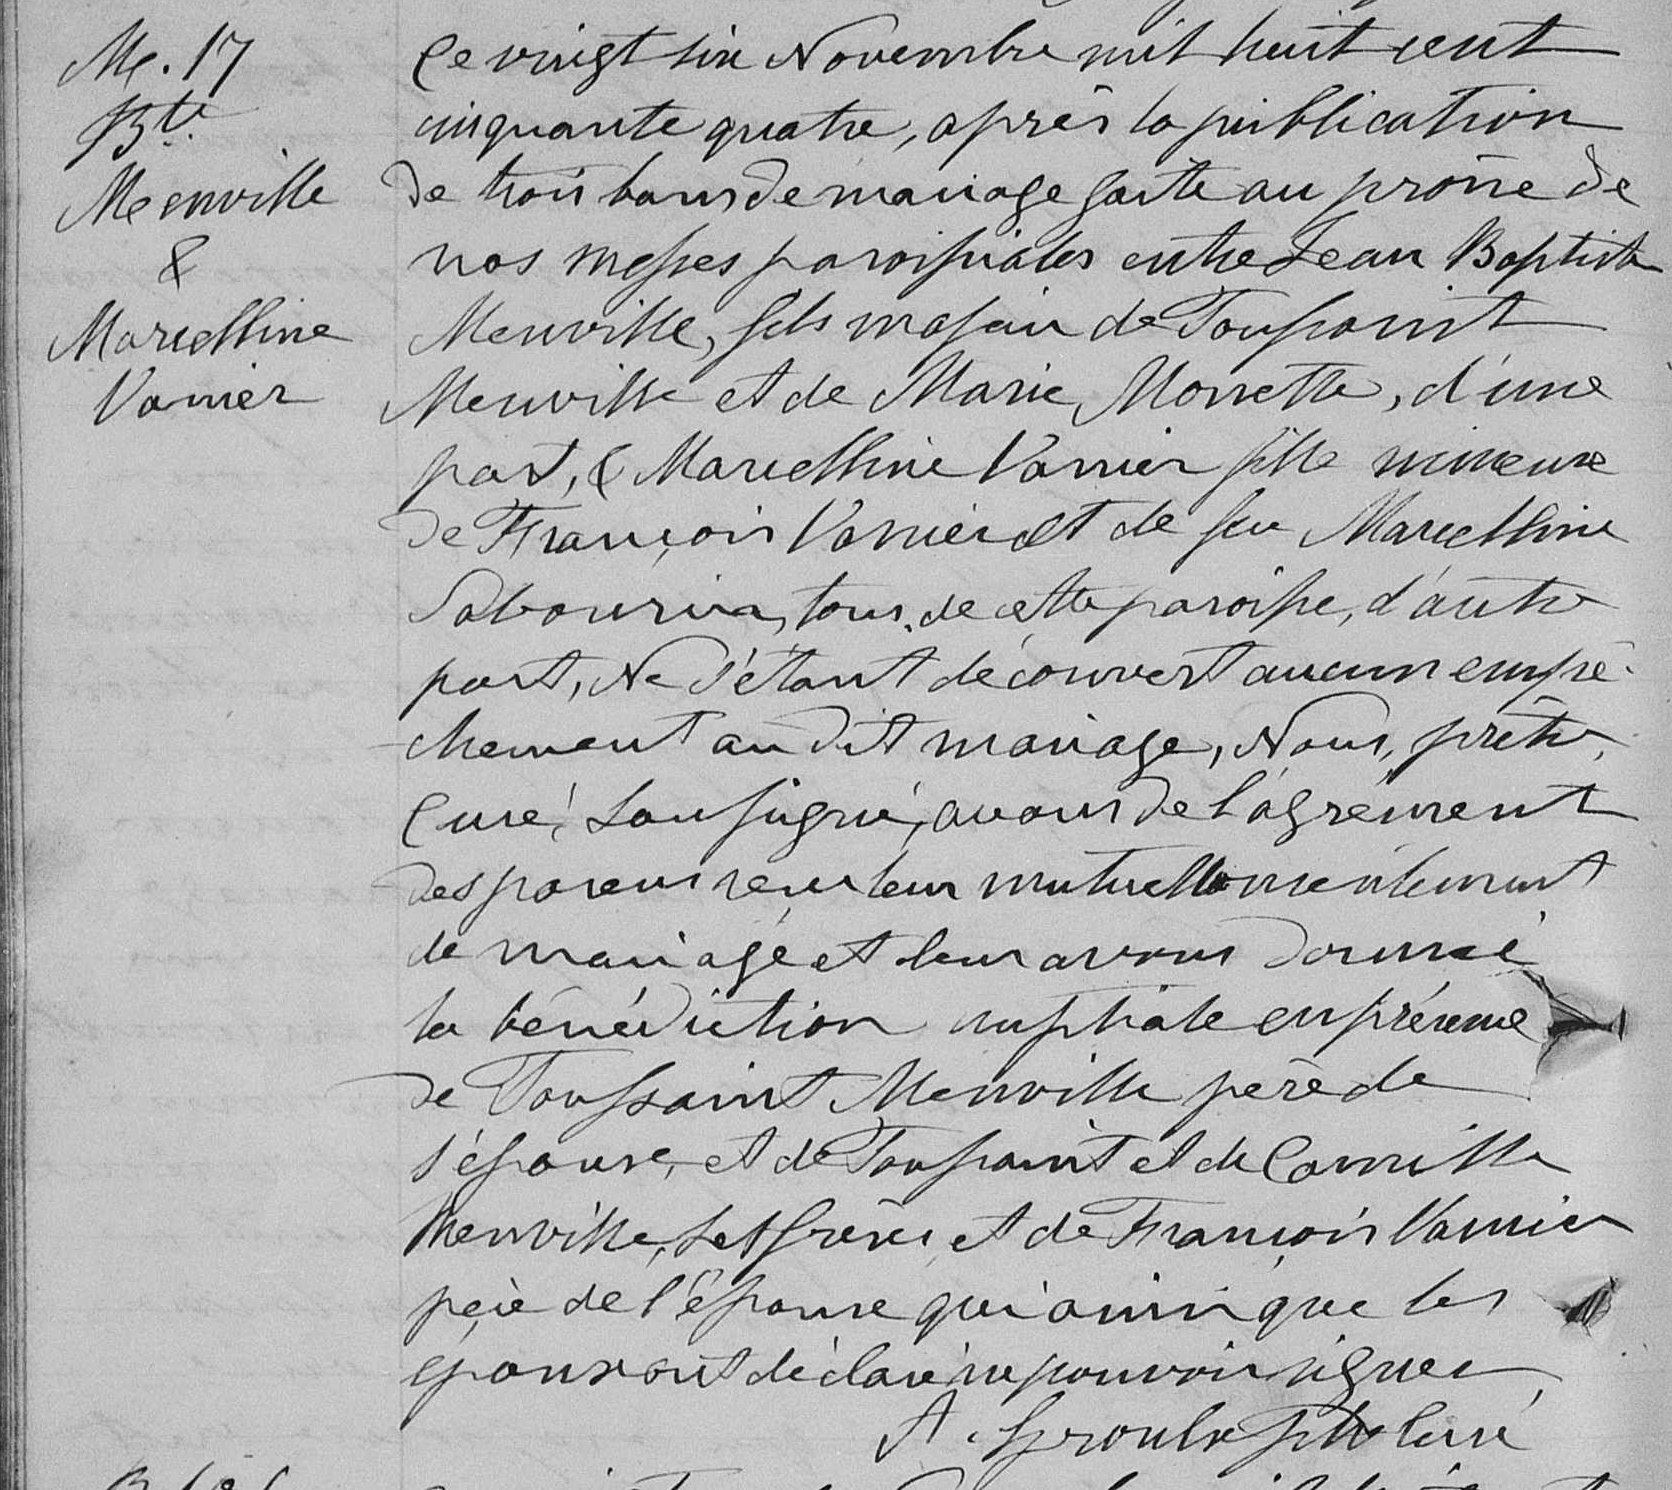 M. 17
Bte
Menville
&
Marcelline
Vanier
Ce vingt six Novembre mil huit cent
cinquante quatre, après la publication
de trois bans de mariage faite au prône de
nos messes paroissiales entre Jean Baptiste
Menville, fils majeur de Toussaint
Menville et de Marie Monette, d'une
part, & Marcelline Vanier fille mineure
de François Vanier et de feu Marcelline
Sabourin, tous de cette paroisse, d'autre
part, Ne s'étant découvert aucun empê-
chement au dit mariage, Nous, prêtre,
Curé, soussigné, avons de l'agrément
des parens reçu leur mutuel consentement
de mariage et leur avons donné
la bénédiction nuptiale en présence
de Toussaint Menville père de
l'épouse, et de Toussaint et de Camille
Menville, ses frères, et de François Vanier
père de l'épouse qui ainsi que les
epoux ont déclaré ne pouvoir signer,
A. Groulx Ptre Curé